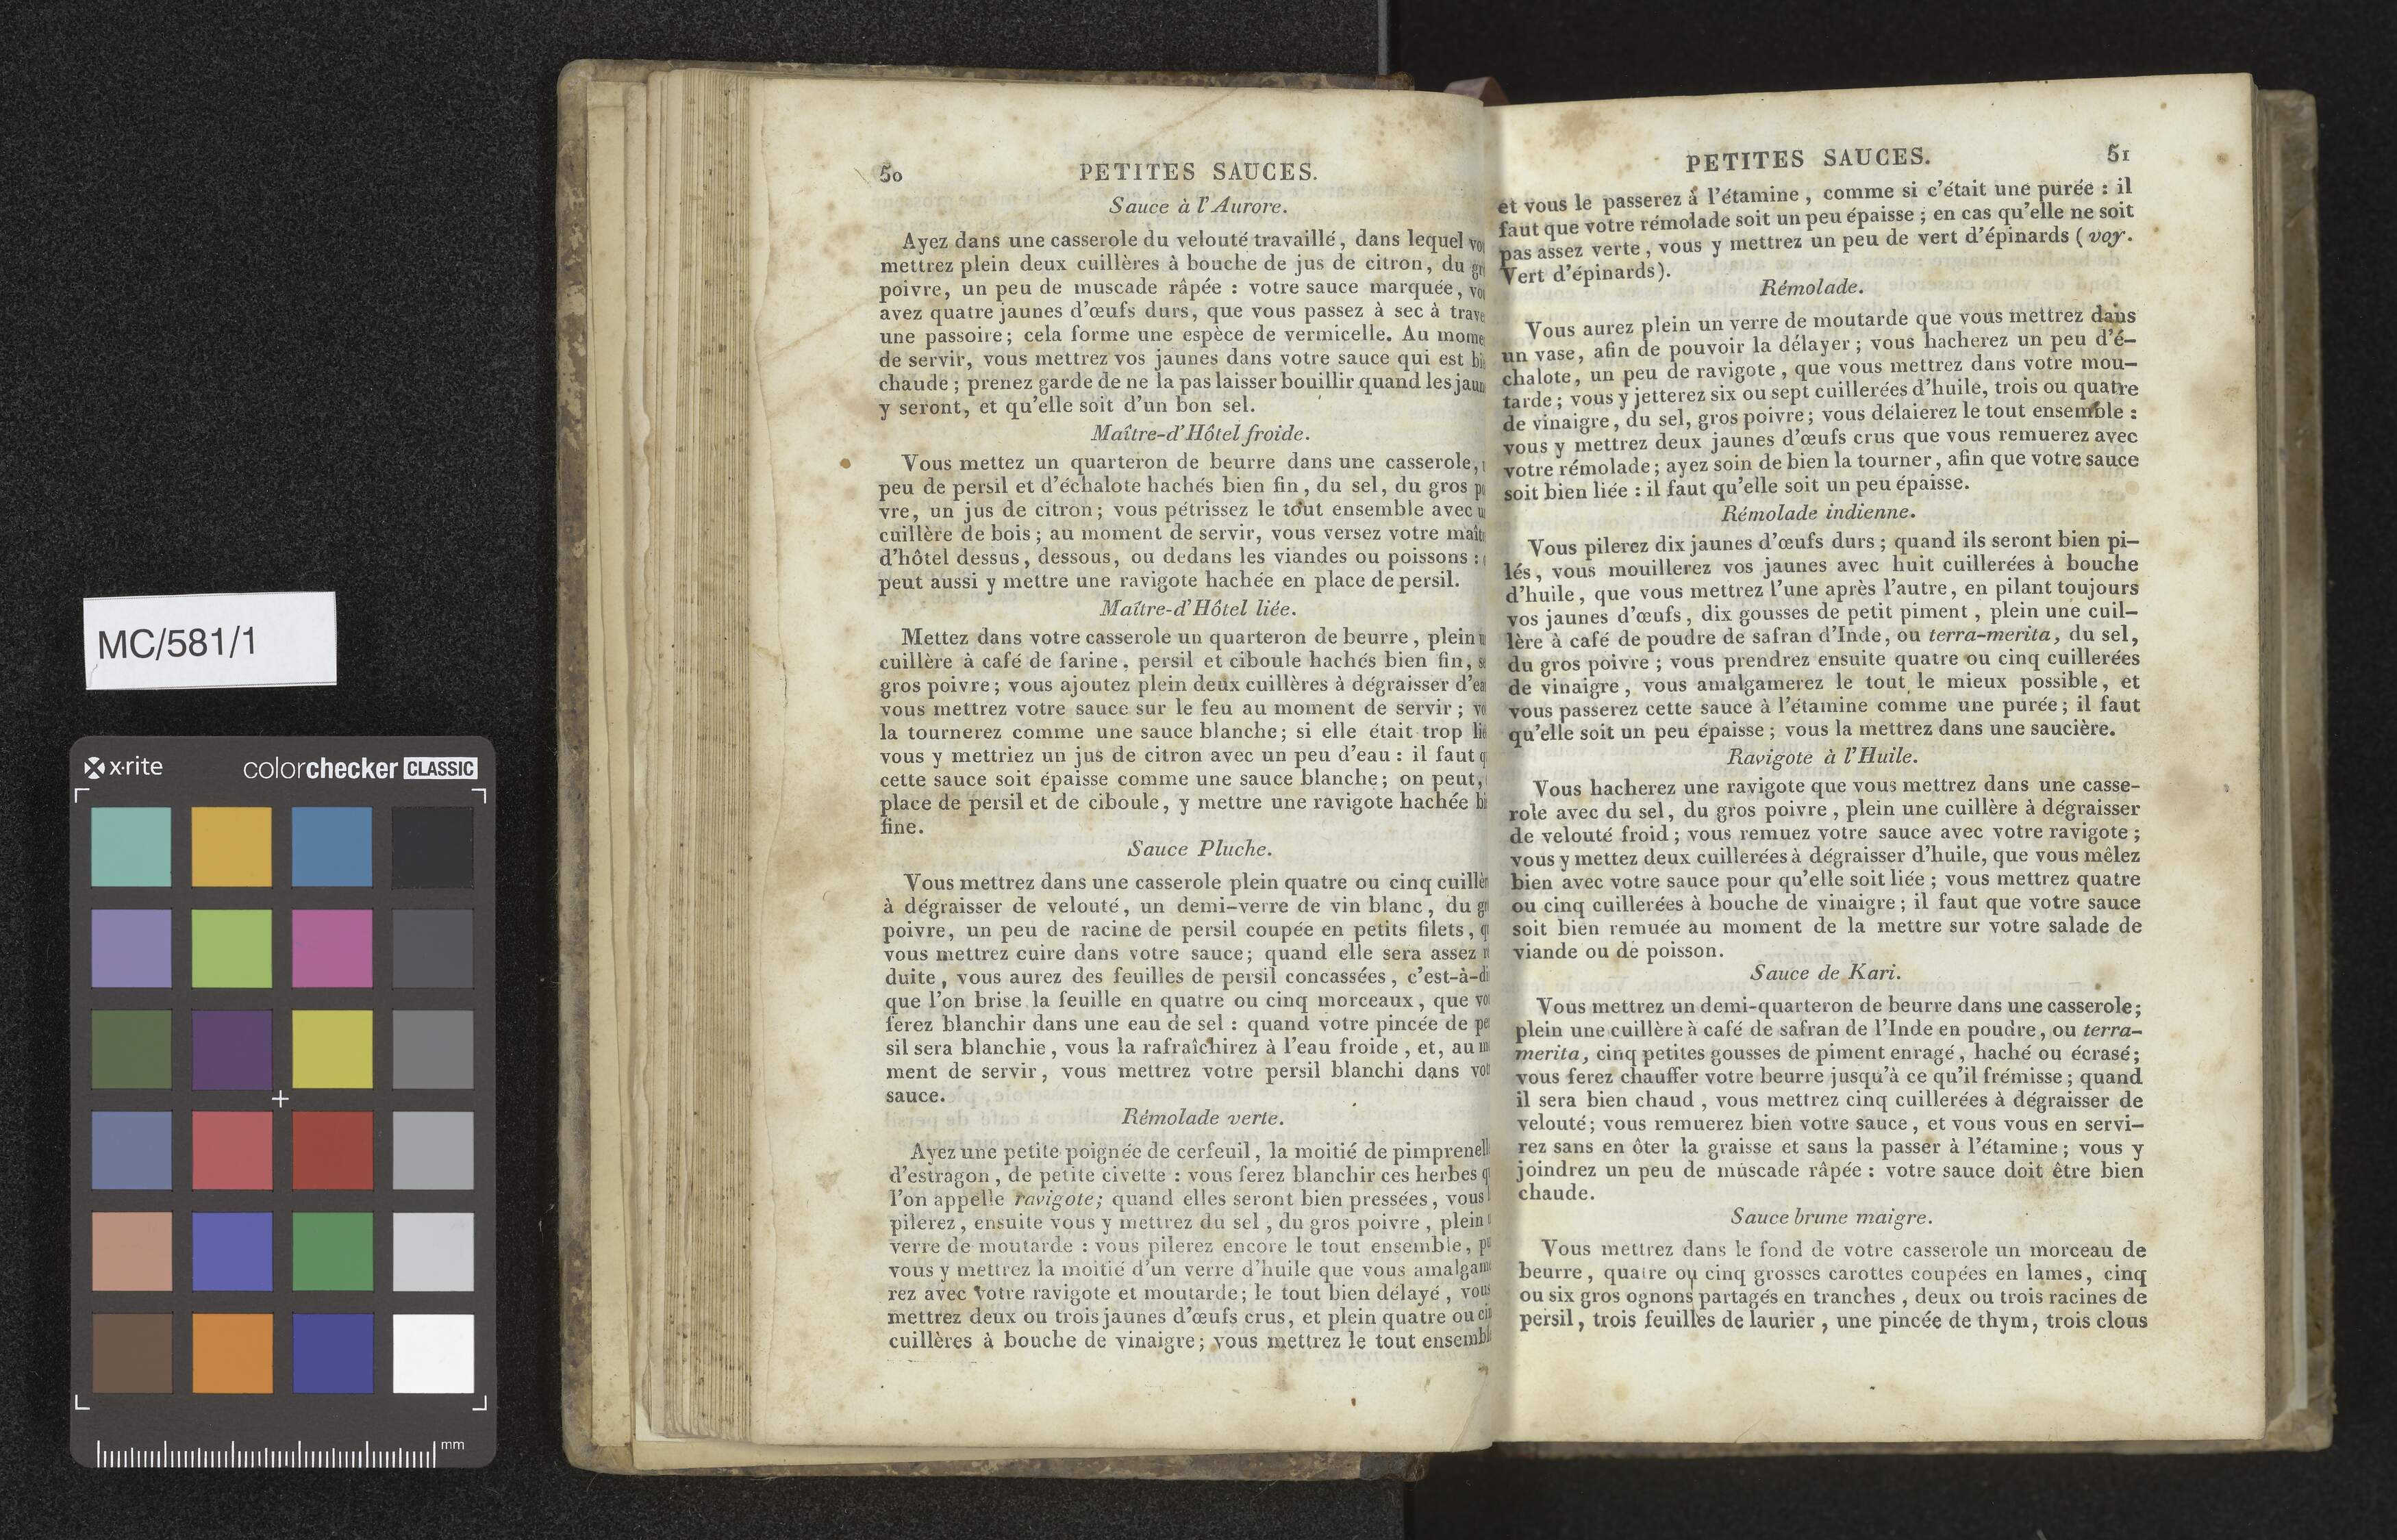 MC/581/1
x-rite
colorchecker CLASSIC
mm
50 PETITES SAUCES.
Sauce à l'Aurore.
Ayez dans une casserole du velouté travaillé, dans lequel
mettrez plein deux cuillères à bouche de jus de citron, du
poivre, un peu de muscade râpée : votre sauce marquée,
avez quatre jaunes d'œufs durs, que vous passez à sec à
une passoire; cela forme une espèce de vermicelle. Au
de servir, vous mettrez vos jaunes dans votre sauce qui est
chaude ; prenez garde de ne la pas laisser bouillir quand les
y seront, et qu'elle soit d'un bon sel.
Maître-d'Hôtel froide.
Vous mettez un quarteron de beurre dans une casserole,
peu de persil et d'échalote hachés bien fin, du sel, du gros
vre, un jus de citron; vous pétrissez le tout ensemble avec
cuillère de bois ; au moment de servir, vous versez votre
d'hôtel dessus, dessous, ou dedans les viandes ou poissons :
peut aussi y mettre une ravigote hachée en place de persil.
Maître-d'Hôtel liée.
Mettez dans votre casserole un quarteron de beurre, plein
cuillère à café de farine, persil et ciboule hachés bien fin,
gros poivre; vous ajoutez plein deux cuillères à dégraisser
vous mettrez votre sauce sur le feu au moment de servir ;
la tournerez comme une sauce blanche; si elle était trop
vous y mettriez un jus de citron avec un peu d'eau : il faut
cette sauce soit épaisse comme une sauce blanche; on peut,
place de persil et de ciboule, y mettre une ravigote hachée
fine.
Sauce Pluche.
Vous mettrez dans une casserole plein quatre ou cinq
à dégraisser de velouté, un demi-verre de vin blanc, du
poivre, un peu de racine de persil coupée en petits filets,
vous mettrez cuire dans votre sauce; quand elle sera assez
duite, vous aurez des feuilles de persil concassées,
que l'on brise la feuille en quatre ou cinq morceaux, que
ferez blanchir dans une eau de sel : quand votre pincée de
sil sera blanchie, vous la rafraîchirez à l'eau froide, et, au
ment de servir, vous mettrez votre persil blanchi dans
sauce.
Rémolade verte.
Ayez une petite poignée de cerfeuil, la moitié de
d'estragon, de petite civette : vous ferez blanchir ces herbes
l'on appelle ravigote; quand elles seront bien pressées, vous
pilerez, ensuite vous y mettrez du sel, du gros poivre, plein
verre de moutarde : vous pilerez encore le tout ensemble,
vous y mettrez la moitié d'un verre d'huile que vous
rez avec votre ravigote et moutarde; le tout bien délayé, vous
mettrez deux ou trois jaunes d'œufs crus, et plein quatre ou
cuillères à bouche de vinaigre; vous mettrez le tout
PETITES SAUCES. 51
et vous le passerez à l'étamine, comme si c'était une purée : il
faut que votre rémolade soit un peu épaisse ; en cas qu'elle ne soit
pas assez verte, vous y mettrez un peu de vert d'épinards ( voy.
Vert d'épinards).
Rémolade.
Vous aurez plein un verre de moutarde que vous mettrez dans
un vase, afin de pouvoir la délayer ; vous hacherez un peu d'é-
chalote, un peu de ravigote, que vous mettrez dans votre mou-
tarde ; vous y jetterez six ou sept cuillerées d'huile, trois ou quatre
de vinaigre, du sel, gros poivre; vous délaierez le tout ensemble :
vous y mettrez deux jaunes d'œufs crus que vous remuerez avec
votre rémolade; ayez soin de bien la tourner, afin que votre sauce
soit bien liée : il faut qu'elle soit un peu épaisse.
Rémolade indienne.
Vous pilerez dix jaunes d'œufs durs ; quand ils seront bien pi-
lés, vous mouillerez vos jaunes avec huit cuillerées à bouche
d'huile, que vous mettrez l'une après l'autre, en pilant toujours
vos jaunes d'œufs, dix gousses de petit piment, plein une cuil-
lère à café de poudre de safran d'Inde, ou terra-merita, du sel,
du gros poivre ; vous prendrez ensuite quatre ou cinq cuillerées
de vinaigre, vous amalgamerez le tout le mieux possible, et
vous passerez cette sauce à l'étamine comme une purée; il faut
qu'elle soit un peu épaisse ; vous la mettrez dans une saucière.
Ravigote à l'Huile.
Vous hacherez une ravigote que vous mettrez dans une casse-
role avec du sel, du gros poivre, plein une cuillère à dégraisser
de velouté froid ; vous remuez votre sauce avec votre ravigote ;
vous y mettez deux cuillerées à dégraisser d'huile, que vous mêlez
bien avec votre sauce pour qu'elle soit liée ; vous mettrez quatre
ou cinq cuillerées à bouche de vinaigre; il faut que votre sauce
soit bien remuée au moment de la mettre sur votre salade de
viande ou de poisson.
Sauce de Kari.
Vous mettrez un demi-quarteron de beurre dans une casserole;
plein une cuillère à café de safran de l'Inde en poudre, ou terra-
merita, cinq petites gousses de piment enragé, haché ou écrasé;
vous ferez chauffer votre beurre jusqu'à ce qu'il frémisse ; quand
il sera bien chaud, vous mettrez cinq cuillerées à dégraisser de
velouté; vous remuerez bien votre sauce, et vous vous en servi-
rez sans en ôter la graisse et sans la passer à l'étamine; vous y
joindrez un peu de muscade râpée : votre sauce doit être bien
chaude.
Sauce brune maigre.
Vous mettrez dans le fond de votre casserole un morceau de
beurre, quatre ou cinq grosses carottes coupées en lames, cinq
ou six gros ognons partagés en tranches, deux ou trois racines de
persil, trois feuilles de laurier, une pincée de thym, trois clous